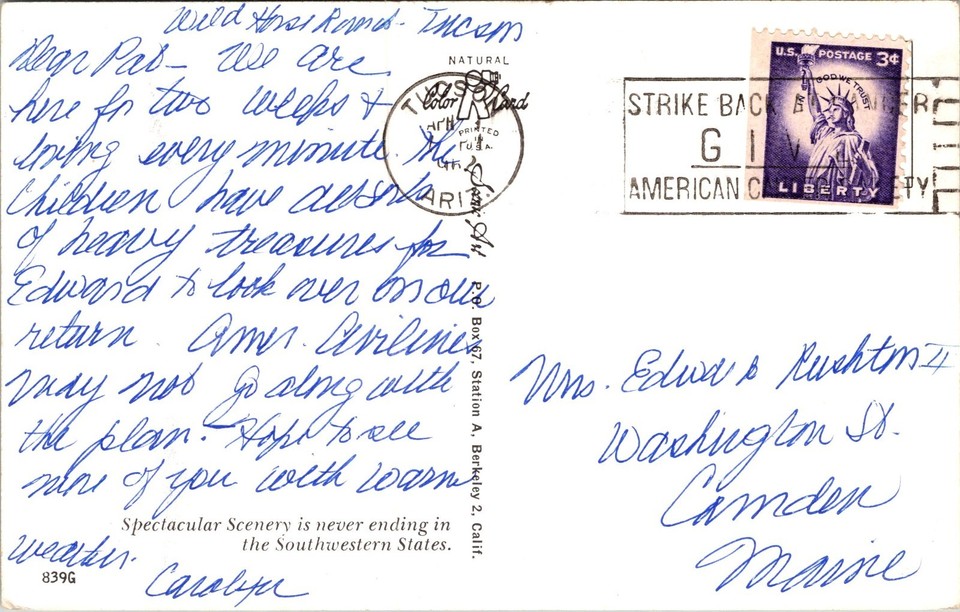 Wild Horse Ranch - Tucson
Dear Pat - We are
here for two weeks &
loving every minute. The
children have
of heavy treasures for
Edward to look over on our
return. Amer. Airlines
may not go along with
the plan. Hope to see
more of you with warm
weather.
Carolyn
Spectacular Scenery is never ending in
the Southwestern States.
839G
NATURAL
Color Card
PRINTED
IN
U.S.A.
TUCSON
ARIZ
Scenic Art
P.O. Box 67, Station A, Berkeley 2, Calif.
STRIKE BACK
GIV
AMERICAN C TY
U.S. POSTAGE 3¢
IN GOD WE TRUST
LIBERTY
Mrs. Edward Rushton II
Washington St.
Camden
Maine